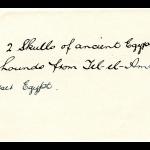 2 Skulls of ancient Egyp
hounds from Tel-el-Am
Egypt.